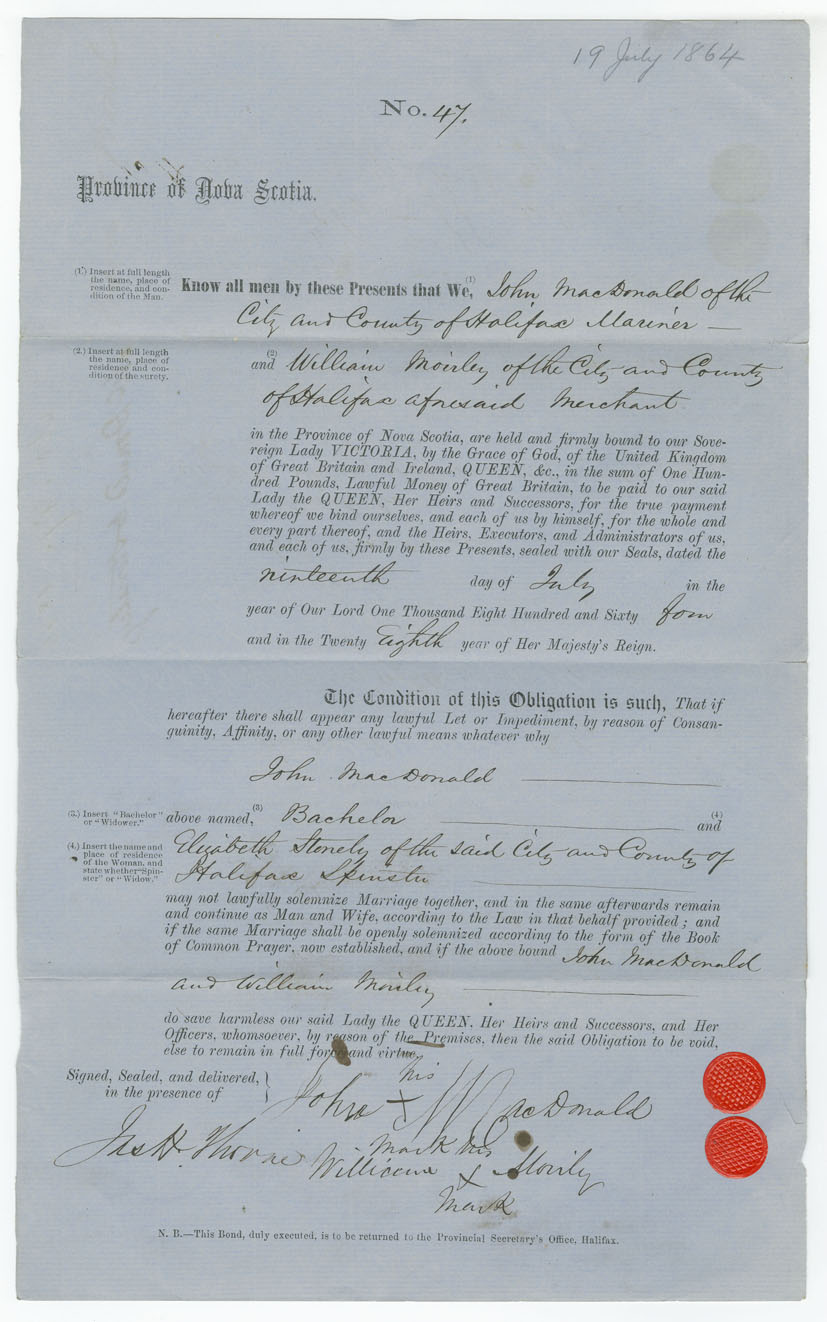 19 July 1864
No. 47.
Province of Nova Scotia.
(1.) Insert at full length
the name, place of
residence, and con-
dition of the Man.
Know all men by these Presents that We, (1) John MacDonald of the
City and County of Halifax Mariner —
(2.) Insert at full length
the name, place of
residence and con-
dition of the surety.
and (2) William Moirley of the City and County
of Halifax aforesaid Merchant
in the Province of Nova Scotia, are held and firmly bound to our Sove-
reign Lady VICTORIA, by the Grace of God, of the United Kingdom
of Great Britain and Ireland, QUEEN, &c., in the sum of One Hun-
dred Pounds, Lawful Money of Great Britain, to be paid to our said
Lady the QUEEN, Her Heirs and Successors, for the true payment
whereof we bind ourselves, and each of us by himself, for the whole and
every part thereof, and the Heirs, Executors, and Administrators of us,
and each of us, firmly by these Presents, sealed with our Seals, dated the
ninteenth day of July in the
year of Our Lord One Thousand Eight Hundred and Sixty four
and in the Twenty Eighth year of Her Majesty's Reign.
The Condition of this Obligation is such, That if
hereafter there shall appear any lawful Let or Impediment, by reason of Consan-
guinity, Affinity, or any other lawful means whatever why
John MacDonald
(3.) Insert "Bachelor"
or "Widower."
above named, (3) Bachelor (4) and
(4.) Insert the name and
place of residence
of the Woman, and
state whether "Spin-
ster" or "Widow."
Elizabeth Stonely of the said City and County of
Halifax Spinster
may not lawfully solemnize Marriage together, and in the same afterwards remain
and continue as Man and Wife, according to the Law in that behalf provided; and
if the same Marriage shall be openly solemnized according to the form of the Book
of Common Prayer, now established, and if the above bound John MacDonald
and William Moirley
do save harmless our said Lady the QUEEN, Her Heirs and Successors, and Her
Officers, whomsoever, by reason of the Premises, then the said Obligation to be void,
else to remain in full force and virtue.
Signed, Sealed, and delivered,
in the presence of
his
John X MacDonald
mark
Jas H. Thorne
his
William X Moirley
mark
N. B.—This Bond, duly executed, is to be returned to the Provincial Secretary's Office, Halifax.